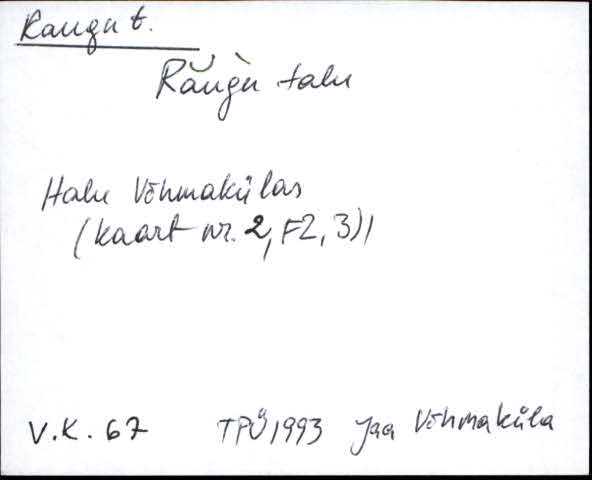 Raugu t.
Răugù talu
Halu Võhmakülas
(kaart nr. 2, F2, 3)1
V.K. 67 TPÜ 1993 Jaa Võhmaküla